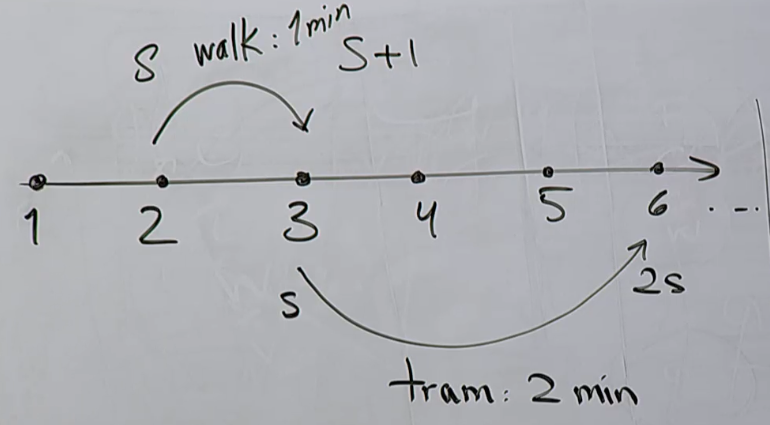 S walk: 1min S+1
1 2 3 4 5 6 ...
s 2s
tram: 2 min